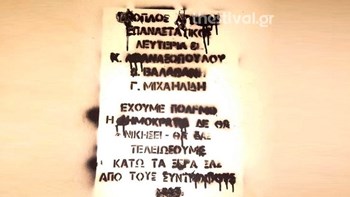 thestival.gr
ΕΝΟΠΛΟΣ
ΕΠΑΝΑΣΤΑΤΙΚΟΣ
ΛΕΥΤΕΡΙΑ
Κ. ΑΘΑΝΑΣΟΠΟΥΛΟΥ
ΒΑΛΑΒΑΝΗ
Γ. ΜΙΧΑΗΛΙΔΗ
ΕΧΟΥΜΕ ΠΟΛΕΜΟ
Η ΔΗΜΟΚΡΑΤΙΑ ΔΕ ΘΑ
ΝΙΚΗΣΕΙ - ΘΑ ΣΑΣ
ΤΕΛΕΙΩΣΟΥΜΕ
ΚΑΤΩ ΤΑ ΞΕΡΑ ΣΑΣ
ΑΠΟ ΤΟΥΣ ΣΥΝΤΡΟΦΟΥΣ
ΜΑΣ